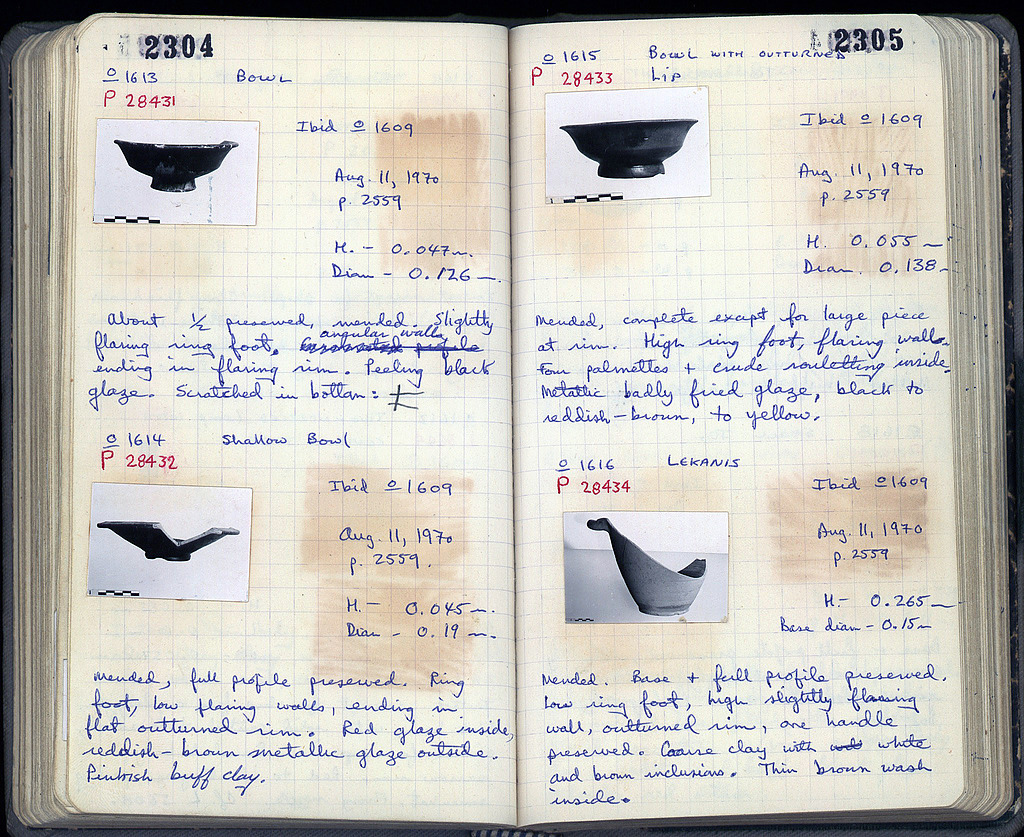 2304
o 1613 Bowl
P 28431
Ibid o 1609
Aug. 11, 1970
p. 2559
H. - 0.047m.
Diam - 0.126m.
About 1/2 preserved, mended. Slightly
flaring ring foot, angular walls
ending in flaring rim. Peeling black
glaze. Scratched in bottom:
o 1614 Shallow Bowl
P 28432
Ibid o 1609
Aug. 11, 1970
p. 2559.
H. - 0.045m.
Diam - 0.19m.
Mended, full profile preserved. Ring
foot, low flaring walls, ending in
flat outturned rim. Red glaze inside,
reddish-brown metallic glaze outside.
Pinkish buff clay.
2305
o 1615 Bowl with outturned
P 28433 Lip
Ibid o 1609
Aug. 11, 1970
p. 2559
H. 0.055m
Diam. 0.138m
Mended, complete except for large piece
at rim. High ring foot, flaring walls.
Four palmettes + crude rouletting inside.
Metallic badly fired glaze, black to
reddish-brown, to yellow.
o 1616 Lekanis
P 28434
Ibid o 1609
Aug. 11, 1970
p. 2559
H. - 0.265m
Base diam - 0.15m
Mended. Base + full profile preserved.
Low ring foot, high slightly flaring
wall, outturned rim, one handle
preserved. Coarse clay with white
and brown inclusions. Thin brown wash
inside.